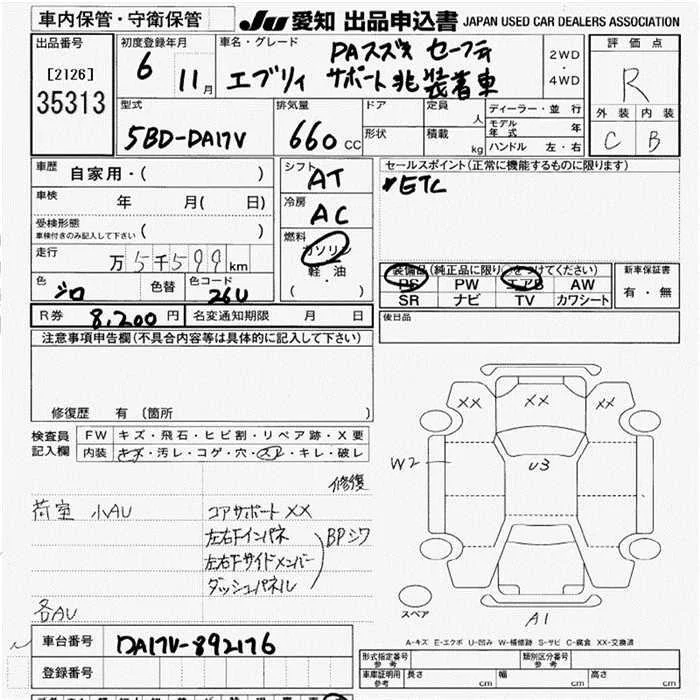 車内保管・守衛保管
JU 愛知 出品申込書 JAPAN USED CAR DEALERS ASSOCIATION
出品番号
[2126]
35313
初度登録年月
6 11月
車名・グレード
PAスズキ セーフティ
エブリイ サポート非装着車
2WD
・
4WD
評価点
R
外装 内装
C B
型式
5BD-DA17V
排気量
660 CC
ドア
形状
定員 人
積載 kg
ディーラー・並行
モデル年式 年
ハンドル 左・右
車歴
自家用・( )
車検
年 月( 日)
受検形態
車検付きのみ記入して下さい ( )
走行
万5千599km
色
シロ
色替
色コード
26U
シフト
AT
冷房
AC
燃料
ガソリン
・
軽油
( )
セールスポイント(正常に機能するものに限ります)
ETC
装備品(純正品に限り○をつけてください)
PS PW エアB AW
SR ナビ TV カワシート
新車保証書
有・無
R券 8,200円
名変通知期限 月 日
後日品
注意事項申告欄(不具合内容等は具体的に記入して下さい)
修復歴 有(箇所 )
検査員記入欄
FW キズ・飛石・ヒビ割・リペア跡・X要
内装 キズ・汚レ・コゲ・穴・スレ・キレ・破レ
修復
荷室 小AU
コアサポートXX
左右Fインパネ
左右Fサイドメンバー
ダッシュパネル
BPシワ
各AU
XX
XX
XX
W2
U3
A1
スペア
A-キズ E-エクボ U-凹み W-補修跡 S-サビ C-腐食 XX-交換済
車台番号
DA17V-892176
登録番号
形式指定番号 参考
類別区分番号 参考
車庫証明用 参考
長さ cm
幅 cm
高さ cm